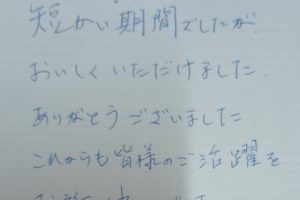 短かい期間でしたが、
おいしくいただけました.
ありがとうございました.
これからも皆様のご活躍を